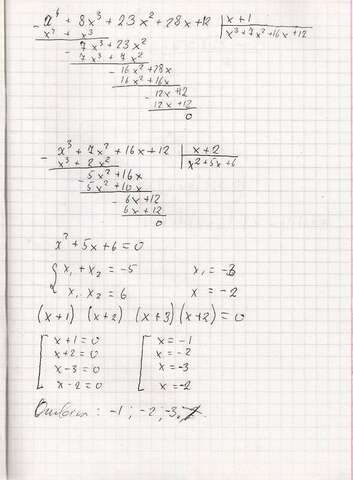 - x⁴ + 8x³ + 23x² + 28x + 12 | x + 1
x⁴ + x³ | x³ + 7x² + 16x + 12
- 7x³ + 23x²
7x³ + 7x²
- 16x² + 28x
16x² + 16x
- 12x + 12
12x + 12
0
- x³ + 7x² + 16x + 12 | x + 2
x³ + 2x² | x² + 5x + 6
- 5x² + 16x
5x² + 10x
- 6x + 12
6x + 12
0
x² + 5x + 6 = 0
{ x₁ + x₂ = -5 x₁ = -3
x₁ x₂ = 6 x = -2
(x+1) (x+2) (x+3)(x+2) = 0
[ x + 1 = 0 [ x = -1
x + 2 = 0 x = -2
x - 3 = 0 x = -3
x - 2 = 0 x = -2
: -1 ; -2, -3,